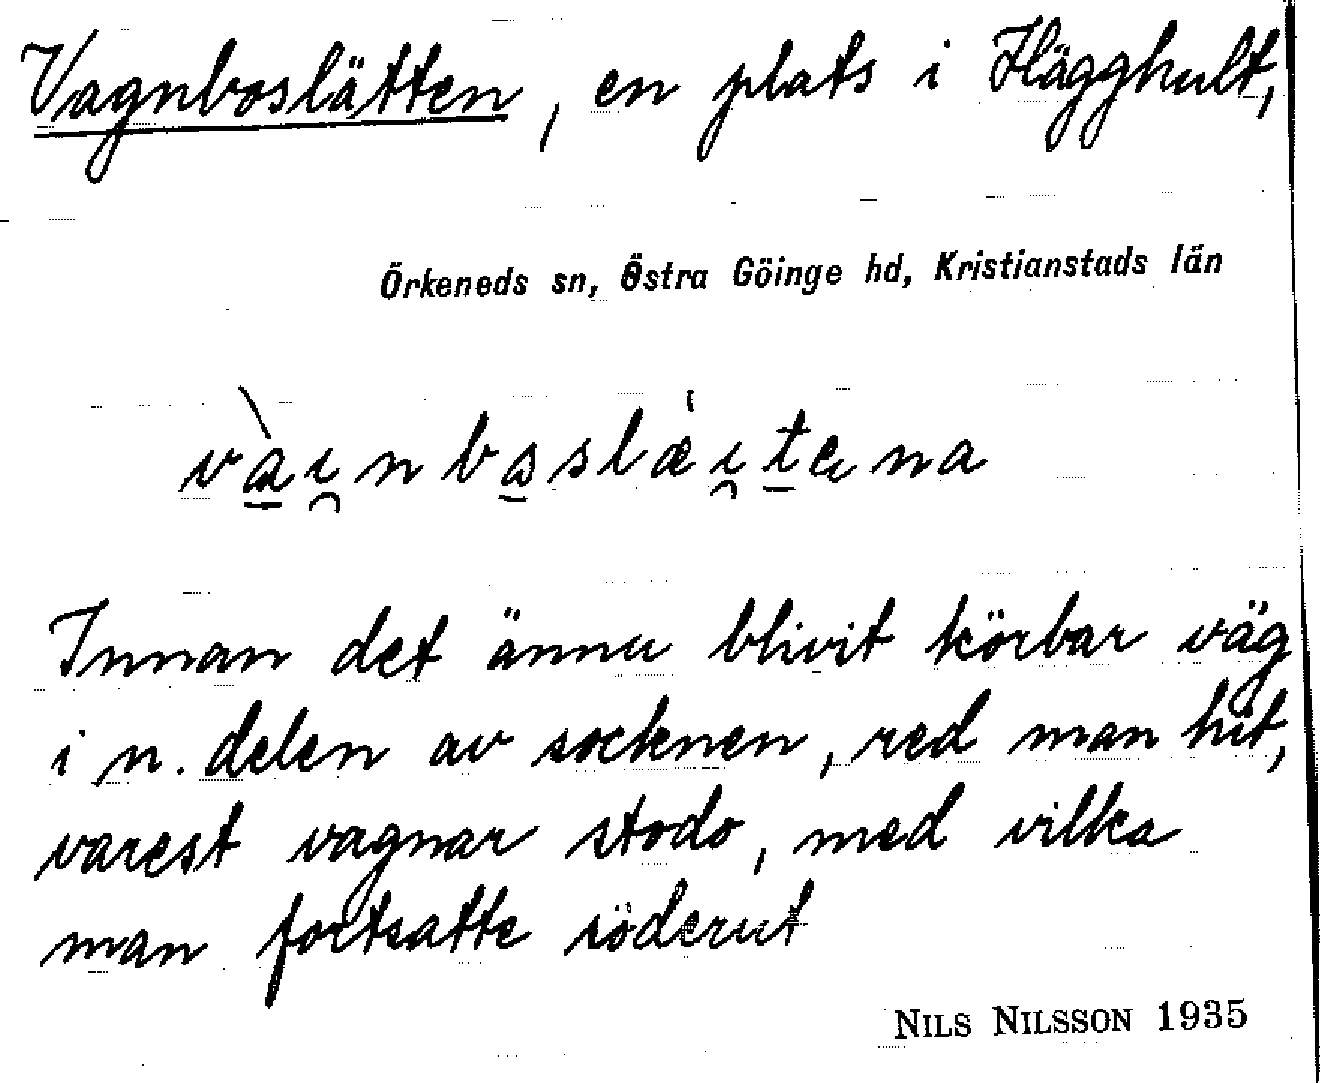 Vagnboslätten, en plats i Hägghult,
Örkeneds sn, Östra Göinge hd, Kristianstads län
Innan det ännu blivit körbar väg
i n. delen av socknen, red man hit,
varest vagnar stodo, med vilka
man fortsatte söderut
NILS NILSSON 1935